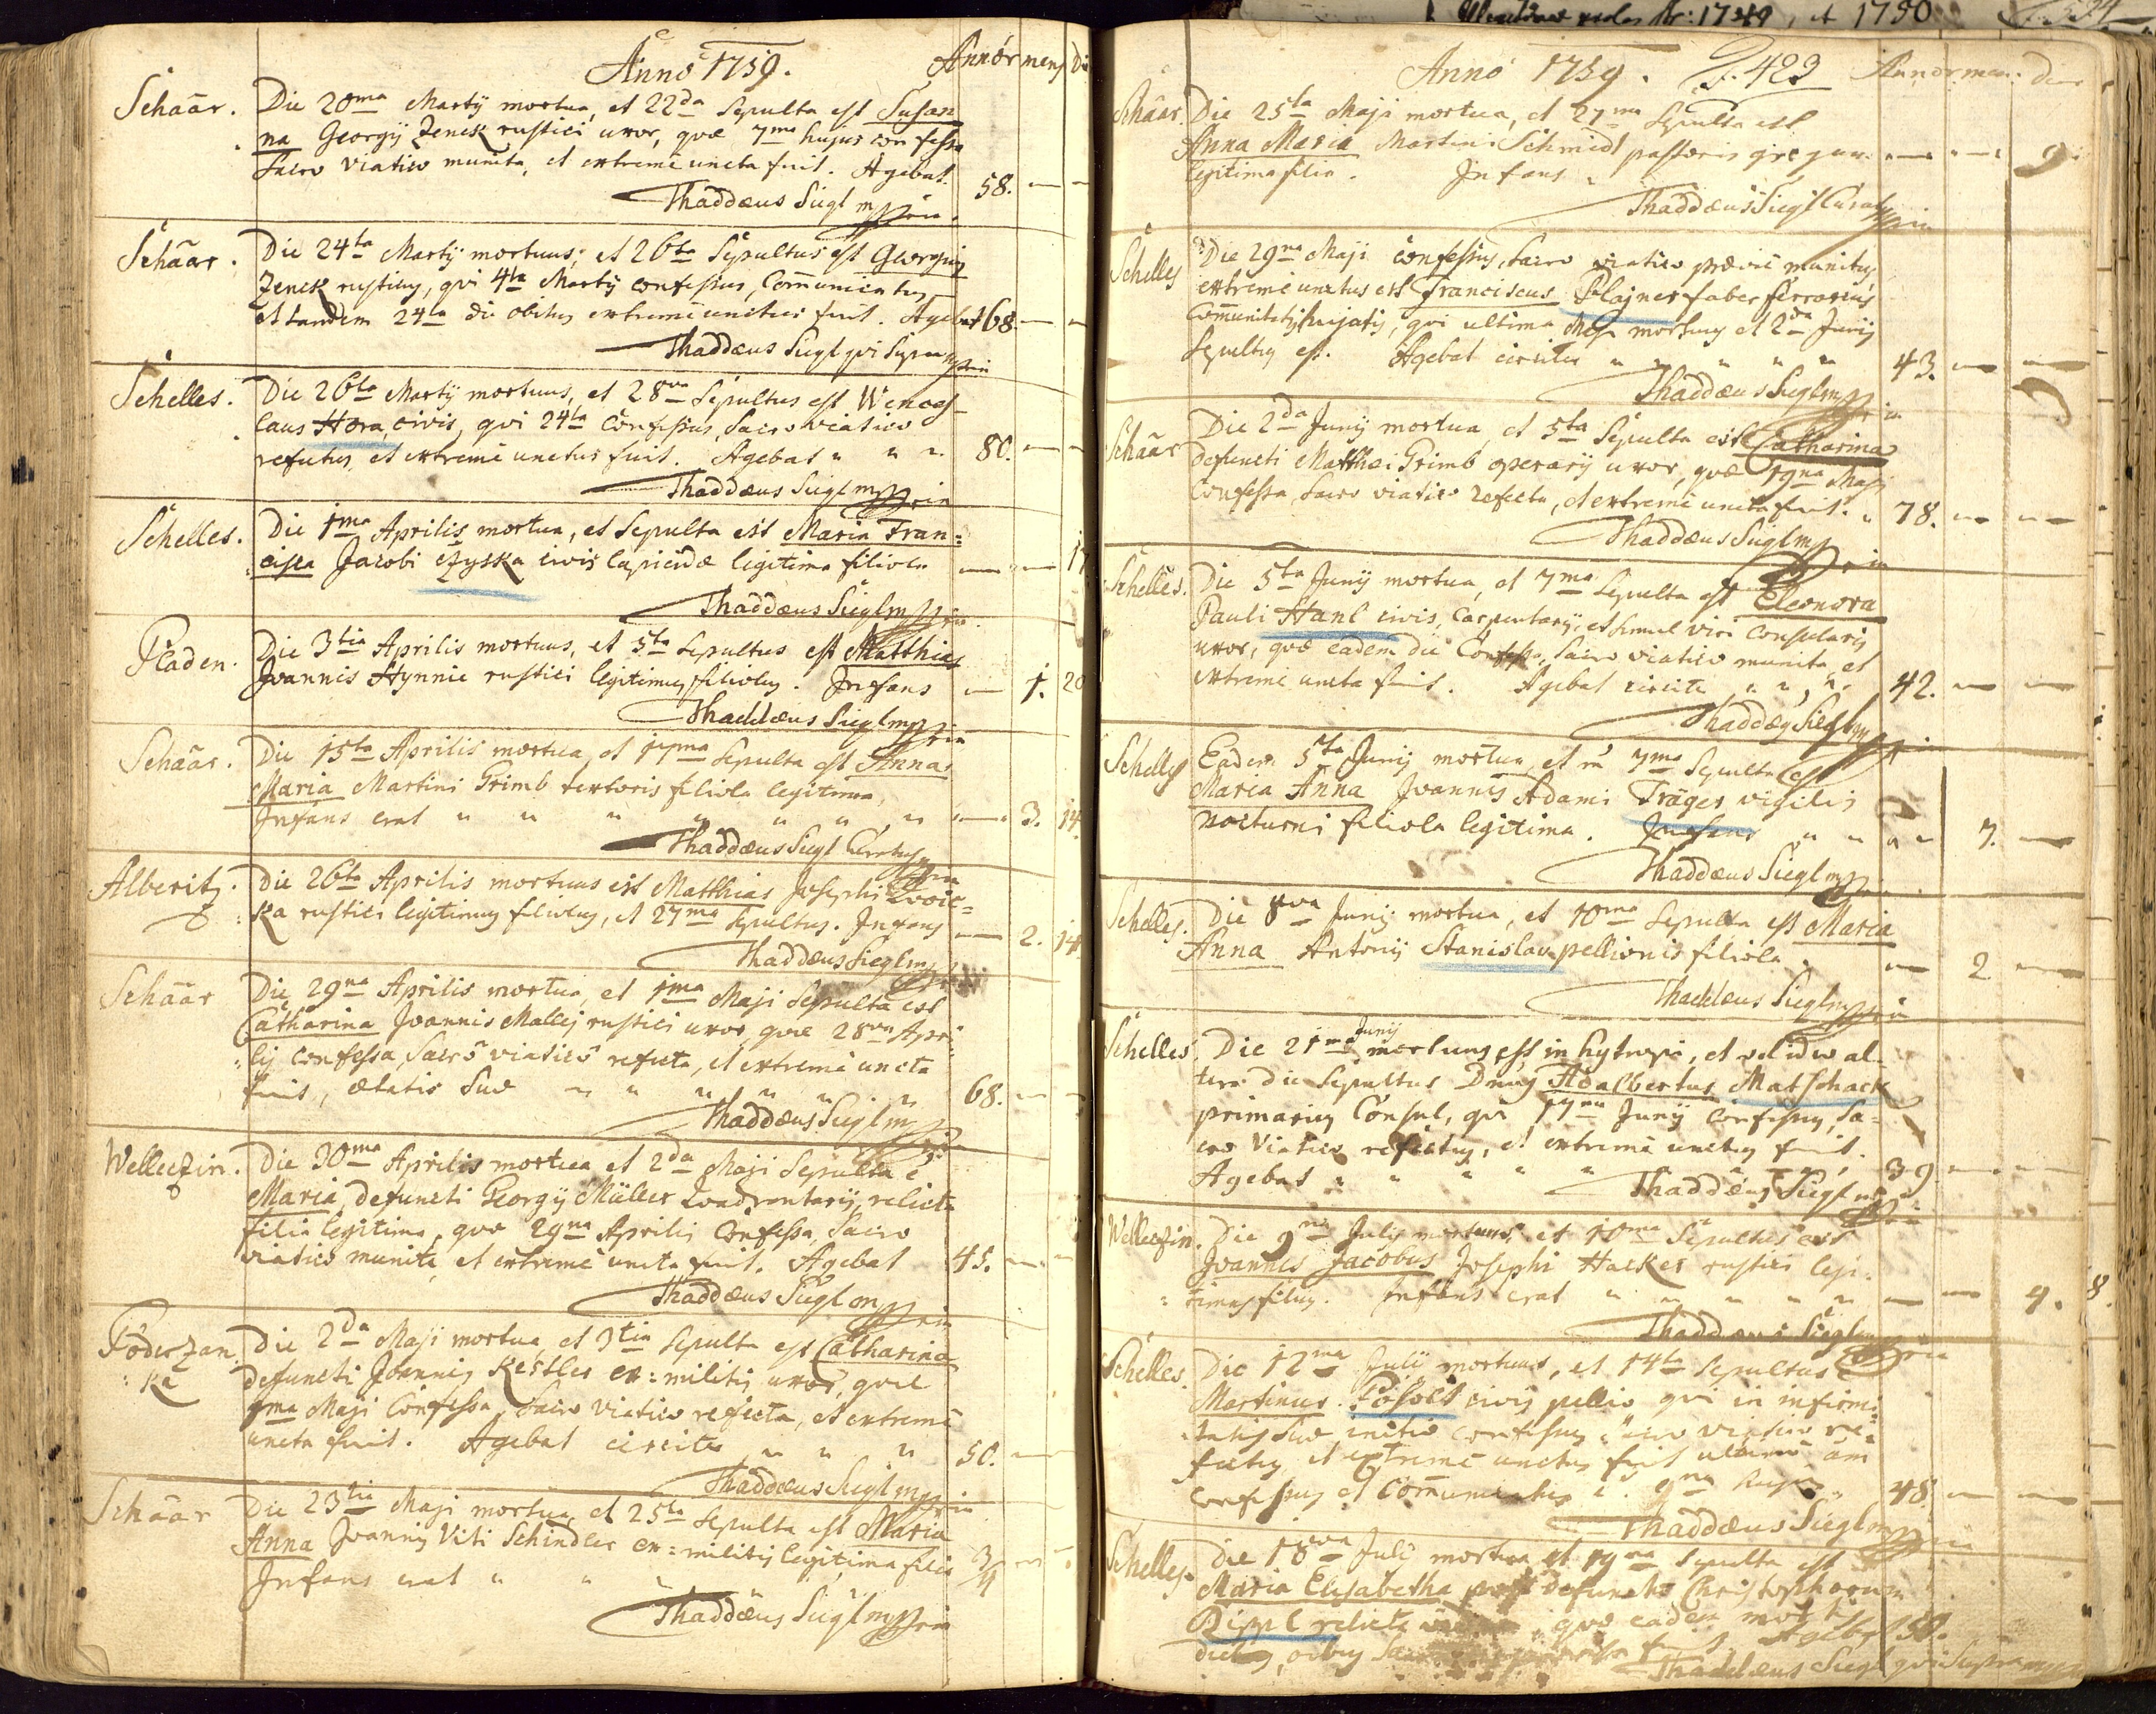 Anno 1759. Annor mens Di
Schaar. Die 20ma Martij mortua, et 22da Sepulta est Susan
na Georgij Zenck rustici uxor, quæ 7ma hujus confessa
Sacro viatico munita, et extreme uncta fuit. Agebat 58.
Thaddæus Siegl mppria.
Schaar. Die 24ta Martij mortuus, et 26ta Sepultus est Georgius
Zenck rusticus, qui 4ta Martij confessus, Communicatus
et tandem 24ta die obitus extreme unctus fuit. Agebat 68.
Thaddæus Siegl qui Supra mppria
Schelles. Die 26ta Martij mortuus, et 28va Sepultus est Wences
laus Hora, civis, qui 24ta Confessus, Sacro viatico
refectus, et extreme unctus fuit. Agebat " " " 80.
Thaddæus Siegl mppria
Schelles. Die 1ma Aprilis mortua, et Sepulta est Maria Fran=
cisca Jacobi Czyska civis lapicidæ legitima filiola
Thaddæus Siegl mppria
Pladen. Die 3tia Aprilis mortuus, et 5ta Sepultus est Matthias
Joannis Hynnie rustici legitimus filiolus. Infans 1. 20
Thaddæus Siegl mppria
Schaar. Die 15ta Aprilis mortua, et 17ma Sepulta est Anna
Maria Martini Grimb textoris filiola legitima,
Infans erat " " " " " " " 3. 14.
Thaddæus Siegl Curatus mppria
Alberitz. Die 26ta Aprilis mortuus est Matthias Josephi
ka rustici legitimus filiolus, et 27ma Sepultus. Infans 2. 14
Thaddæus Siegl mppria
Schaar Die 29na Aprilis mortua, et 1ma Maji Sepulta est
Catharina Joannis Mallej rustici uxor, quæ 28va Apri
lis confessa, Sacro viatico refecta, et extreme uncta
fuit, ætatis Suæ " " " " " " 68.
Thaddæus Siegl mppria
Welleczin. Die 30ma Aprilis mortua et 2da Maji Sepulta e
Maria defuncti Georgij Müller relicta
filia legitima, quæ 29na Aprilis Confessa, Sacro
viatico munita, et extreme uncta fuit. Agebat 45.
Thaddæus Siegl mppria
Poderzan Die 2da Maji mortua, et 3tia Sepulta est Catharina
ka defuncti Joannis Kestler ex=militis uxor, quæ
1ma Maji Confessa, Sacro viatico refecta, et extreme
uncta fuit. Agebat circiter " " " 50.
Thaddæus Siegl mppria
Schaar Die 23tia Maji mortua, et 25ta Sepulta est Maria
Anna Joannis Viti Schindler ex=militis legitima filia 3/4
Infans erat " " " "
Thaddæus Siegl mppria
Anno 1759. F. 423 Annor men. dier
Schaar. Die 25ta Maji mortua, et 27ma Sepulta est
Anna Maria Martini Schmidt pastoris gregar. 9.
legitima filia. Infans "
Thaddæus Siegl Curatus mppria
Schelles Die 29na Maji confessus, Sacro viatico prævie munitus,
extreme unctus est Franciscus Plajner faber ferrarius
Communitatis hujatis, qui ultima Maji mortuus et 2da Junij
Sepultus est. Agebat circiter " " " " " 43.
Thaddæus Siegl mppria
Schaar Die 2da Junij mortua, et 5ta Sepulta est Catharina
defuncti Matthæi Grimb operarij uxor, quæ 19na Maji
Confessa, Sacro viatico refecta, et extreme uncta fuit. " 78.
Thaddæus Siegl mppria
Schelles. Die 5ta Junij mortua, et 7ma Sepulta est Eleonora
Pauli Hanl civis, Carpentarij, et Simul viri Consularis
uxor, quæ eadem die Confessa, Sacro viatico munita, et
extreme uncta fuit. Agebat circiter " " " 42.
Thaddæus Siegl mppria
Schelles Eadem 5ta Junij mortua, et 7ma Sepulta est
Maria Anna Joannis Adami Träger vigilis
nocturni filiola legitima. Infans " " " " 7.
Thaddæus Siegl mppria
Schelles. Die 8va Junij mortua, et 10ma Sepulta est Maria
Anna Antonij Stanislau pellionis filiola 2
Thaddæus Siegl mppria
Junij
Schelles. Die 21ma mortuus est in hytropi, et al
tera die Sepultus Dnus Adalbertus Matschack
primarius Consul, qui 17ma Junij Confessus, Sa=
cro Viatico refectus, et extreme unctus fuit.
Agebat " " " " " " " 39.
Thaddæus Siegl mppria
Welleczin. Die 9na Julij mortuus, et 10ma Sepultus est
Joannes Jacobus Josephi Hacker rustici legi=
timus filius. Infans erat " " " " " 4. 8.
Thaddæus Siegl mppria
Schelles. Die 12ma Julij mortuus, et 14ta Sepultus e
Martinus Posolt civis pellio qui in infirmi
tatis Suæ initio confessus, Sacro viatico re=
fectus, et extreme unctus fuit
confessus et Communicatus e. 9na hujus " 48.
Thaddæus Siegl mppria
Schelles. Die 18va Julij mortua, et 19na Sepulta est
Maria Elisabetha post defunctum Christophorum
Rippl relicta quæ eadem
Agebat 50.
Thaddæus Siegl qui Supra mppria